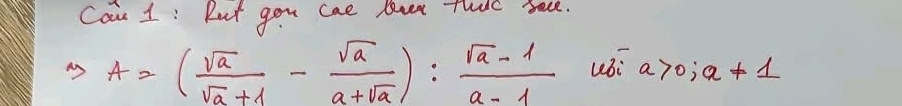 Câu 1 : Rút gọn các biểu thức sau.
a) A = (√a/(√a + 1) - √a/(a + √a)) : (√a - 1)/(a - 1) với a > 0; a ≠ 1